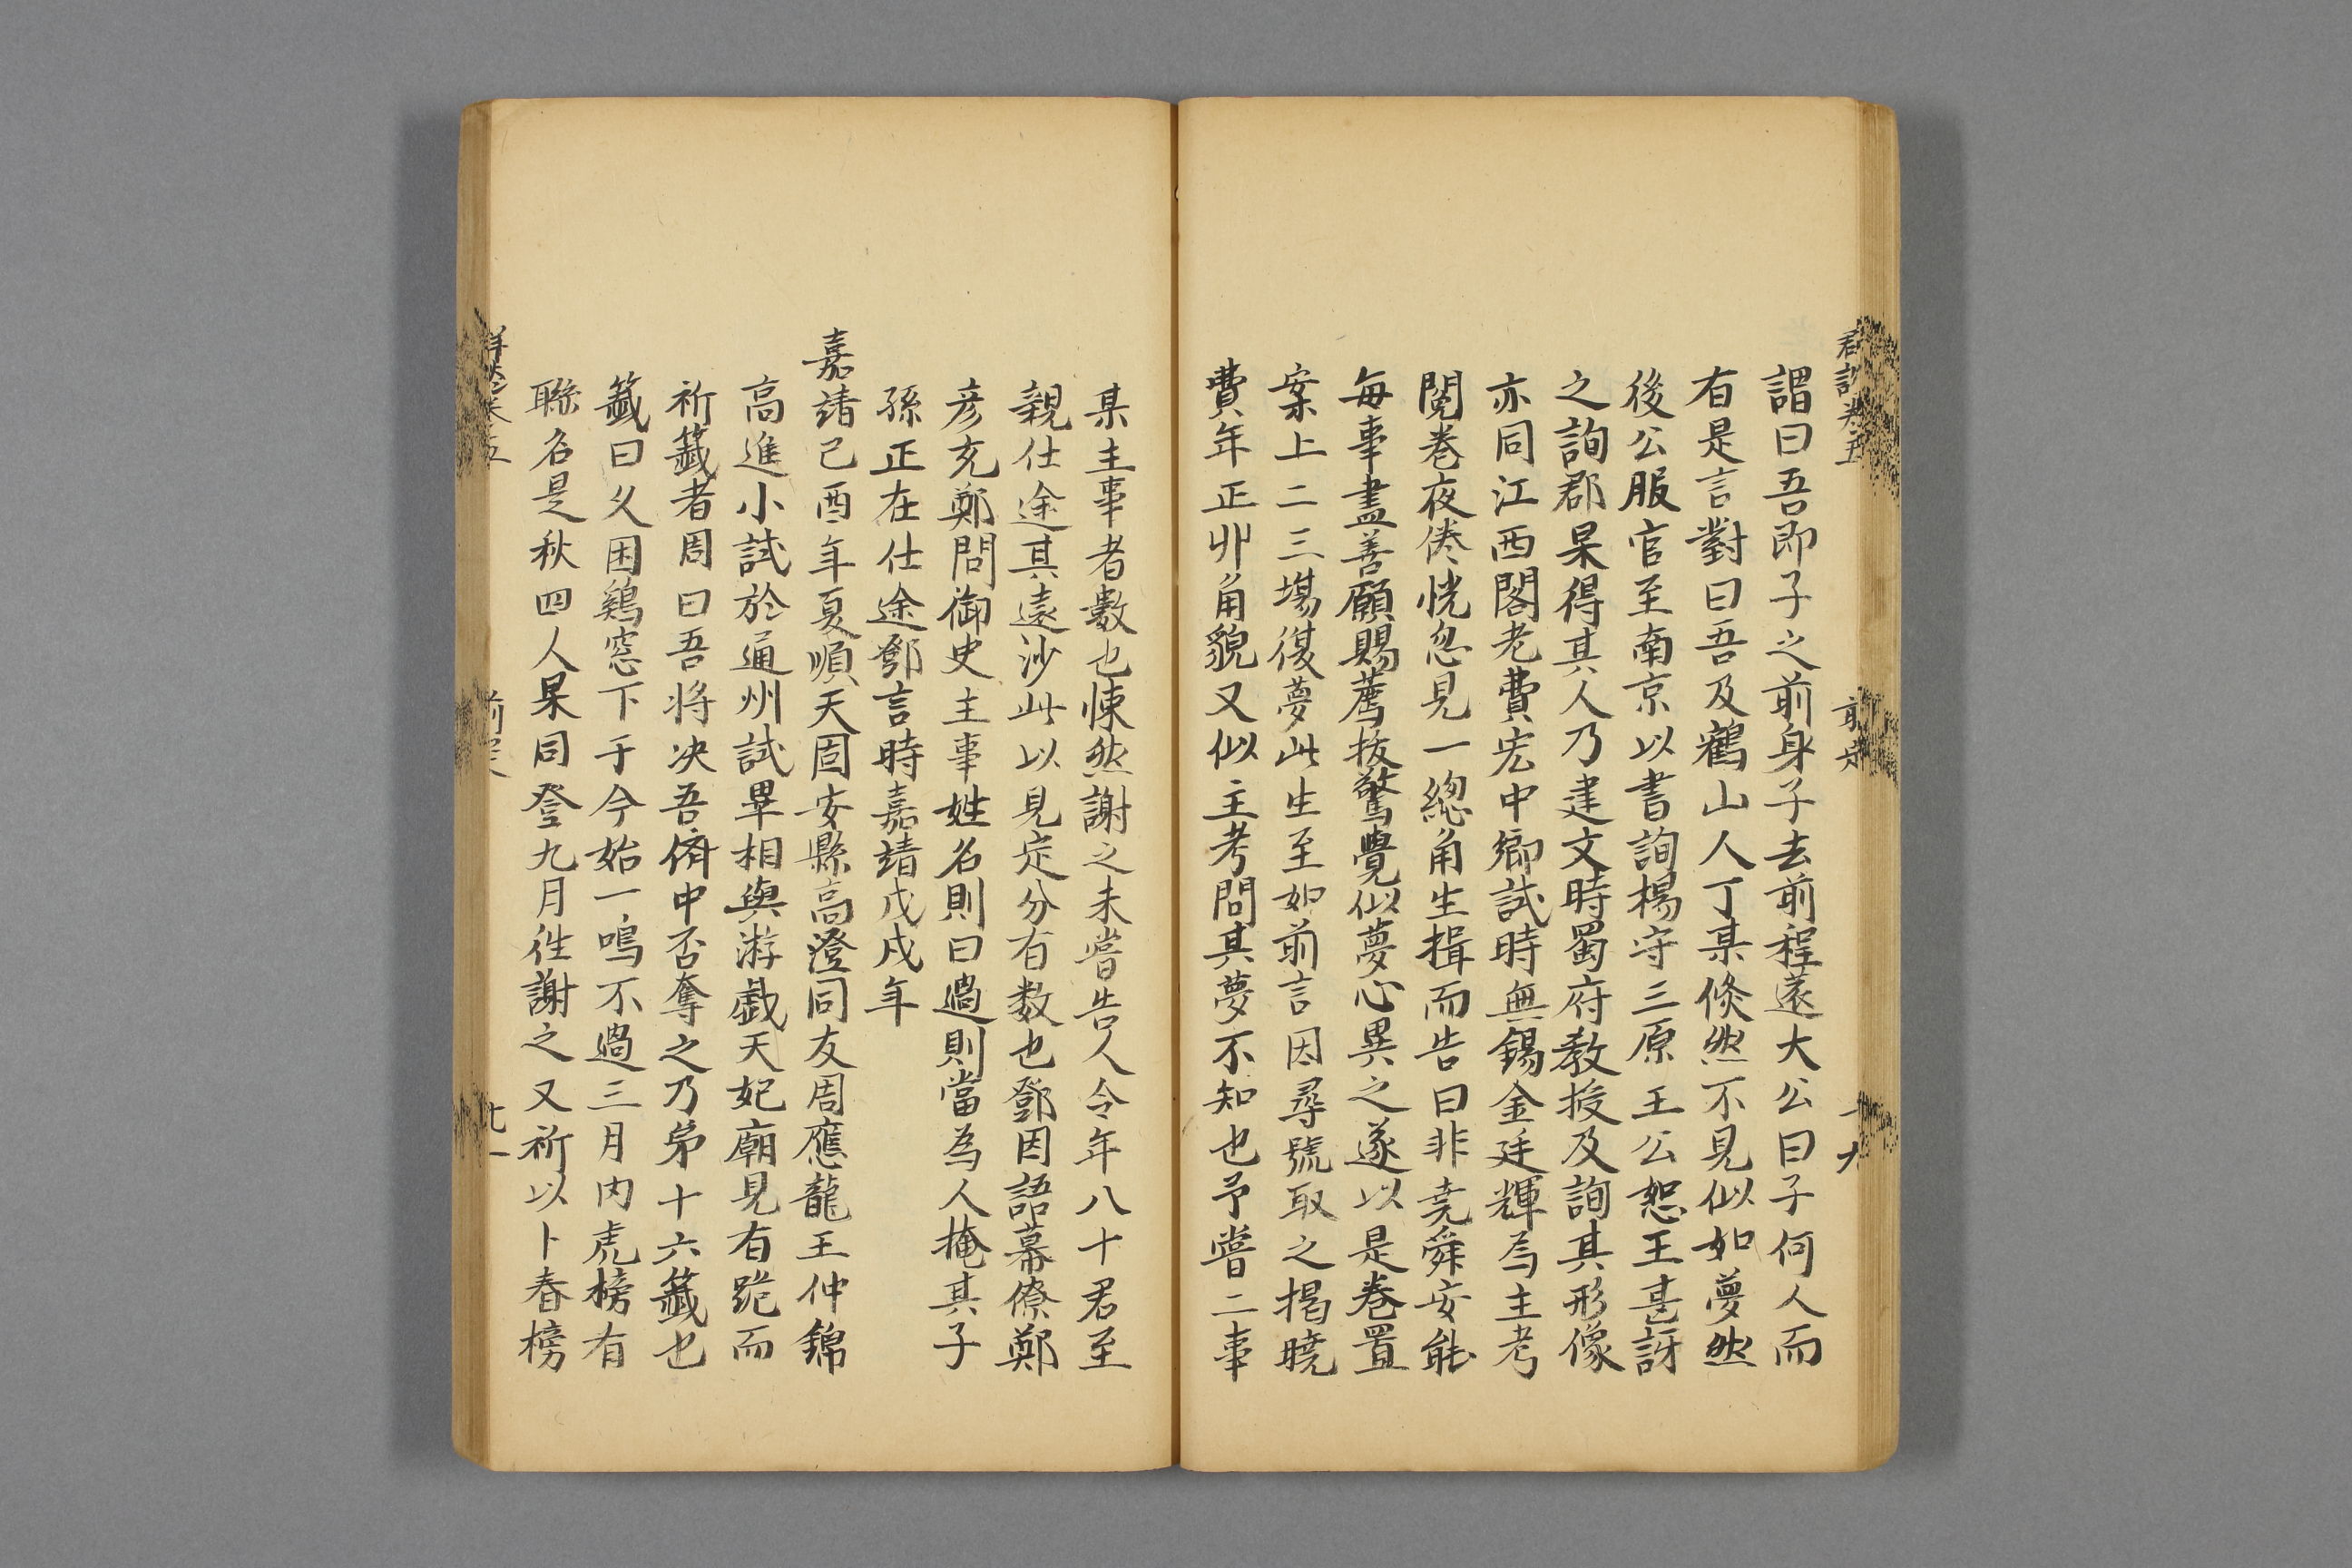 謂曰吾即子之前身子去前程遠大公曰子何人而
有是言對曰吾及鶴山人丁某倐然不見似如夢然
後公服官至南京以書詢楊守三原王公恕王甚訝
之詢郡果得其人乃建文時蜀府教授及詢其形像
亦同江西閣老費宏中鄉試時無錫金廷輝為主考
閱卷夜倦恍忽見一總角生揖而告曰非堯舜安能
每事盡善願賜薦拔驚覺似夢心異之遂以是卷置
案上二三場復夢此生至如前言因尋號取之揭曉
費年正丱角貌又似主考問其夢不知也予嘗二事
某主事者數也悚然謝之未嘗告人令年八十君至
親仕途其遠涉此以見定分有数也鄧因語幕僚鄭
彦充鄭問御史主事姓名則曰過則當為人掩其子
孫正在仕途鄧言時嘉靖戊戌年
嘉靖己酉年夏順天固安縣高澄同友周應龍王仲錦
高進小試於通州試畢相與游戯天妃廟見有跪而
祈籖者周曰吾将决吾儕中否奪之乃弟十六籖也
籖曰乆困鷄窓下于今始一鳴不過三月内虎榜有
聯名是秋四人果同登九月徃謝之又祈以卜春榜
前定